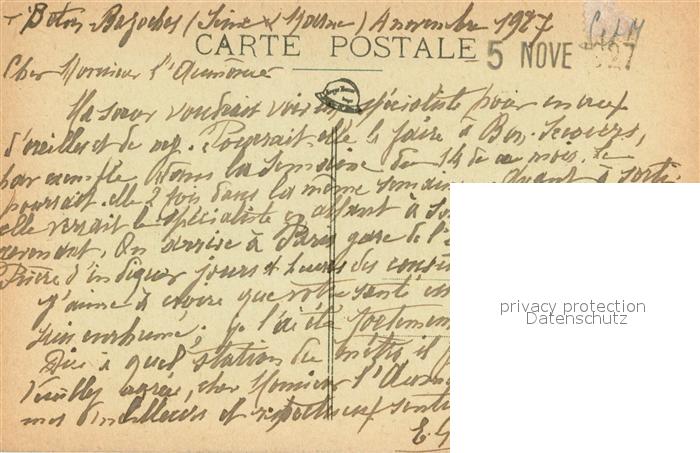 Boton Bazoches (Seine & Marne) 4 novembre 1927
CARTE POSTALE
5 NOVE 1927
Cher Monsieur l'Aumônier
Ma soeur voudrait voir un spécialiste pour
d'oreilles et de nez. Pourrait-elle le faire à Bon-Secours,
par exemple dans la semaine du 14 de ce mois. Et
pourrait-elle 2 fois dans la même semaine
elle verrait le spécialiste en allant à
revenant. On arrive à Paris gare de l'
Prière d'indiquer jours & heures des
J'aime à croire que votre santé
suis enrhumé; je l'ai été fortement
Dire à quel station du métro, il
Veuillez agréer, cher Monsieur l'
mes meilleurs et respectueux
privacy protection
Datenschutz